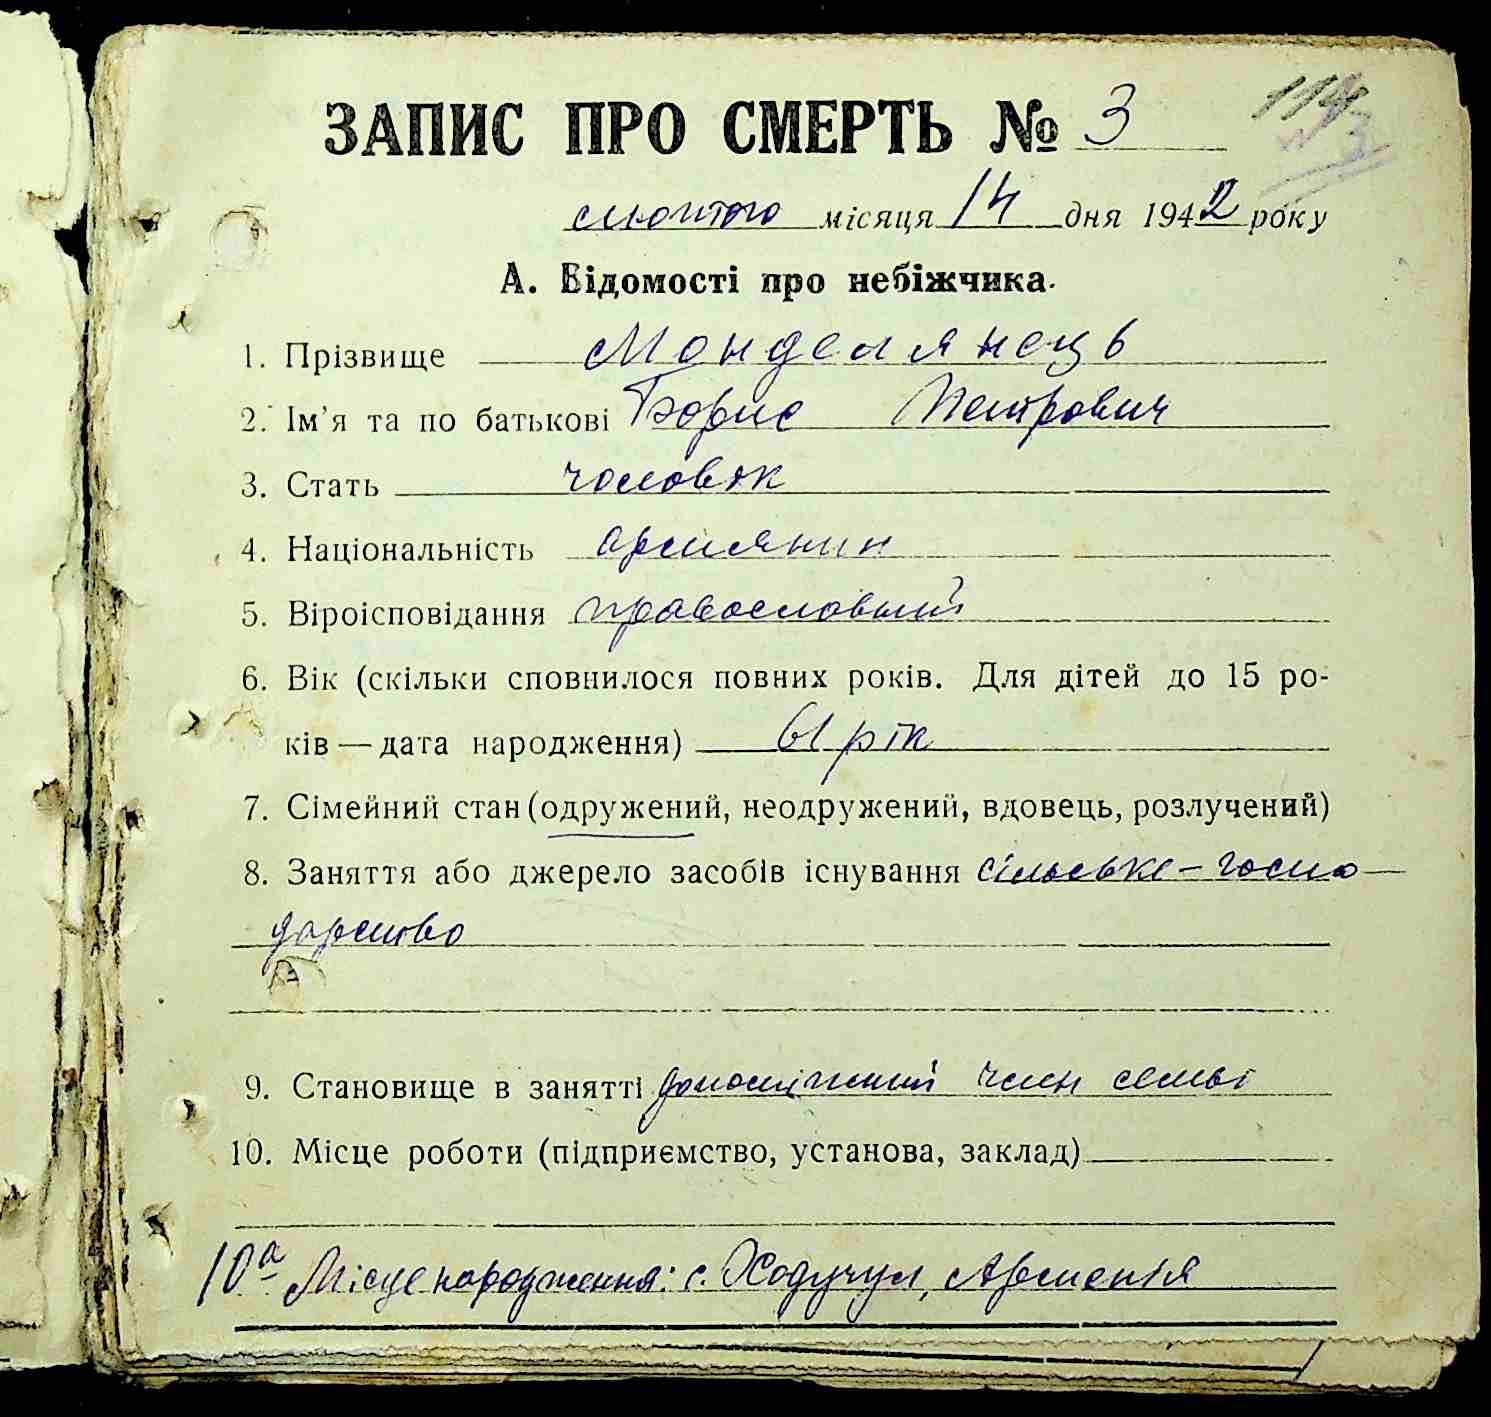 114
№3
ЗАПИС ПРО СМЕРТЬ № 3
лютого місяця 14 дня 1942 року
А. Відомості про небіжчика.
1. Прізвище Монделянець
2. Ім'я та по батькові Борис Петрович
3. Стать чоловік
4. Національність армянин
5. Віроісповідання православний
6. Вік (скільки сповнилося повних років. Для дітей до 15 ро-
ків — дата народження) 61 рік
7. Сімейний стан (одружений, неодружений, вдовець, розлучений)
8. Заняття або джерело засобів існування сільське-госпо-
дарство
9. Становище в занятті допоміжний член семьі
10. Місце роботи (підприємство, установа, заклад)
10а Місце народження: с. Ходучул, Арменія